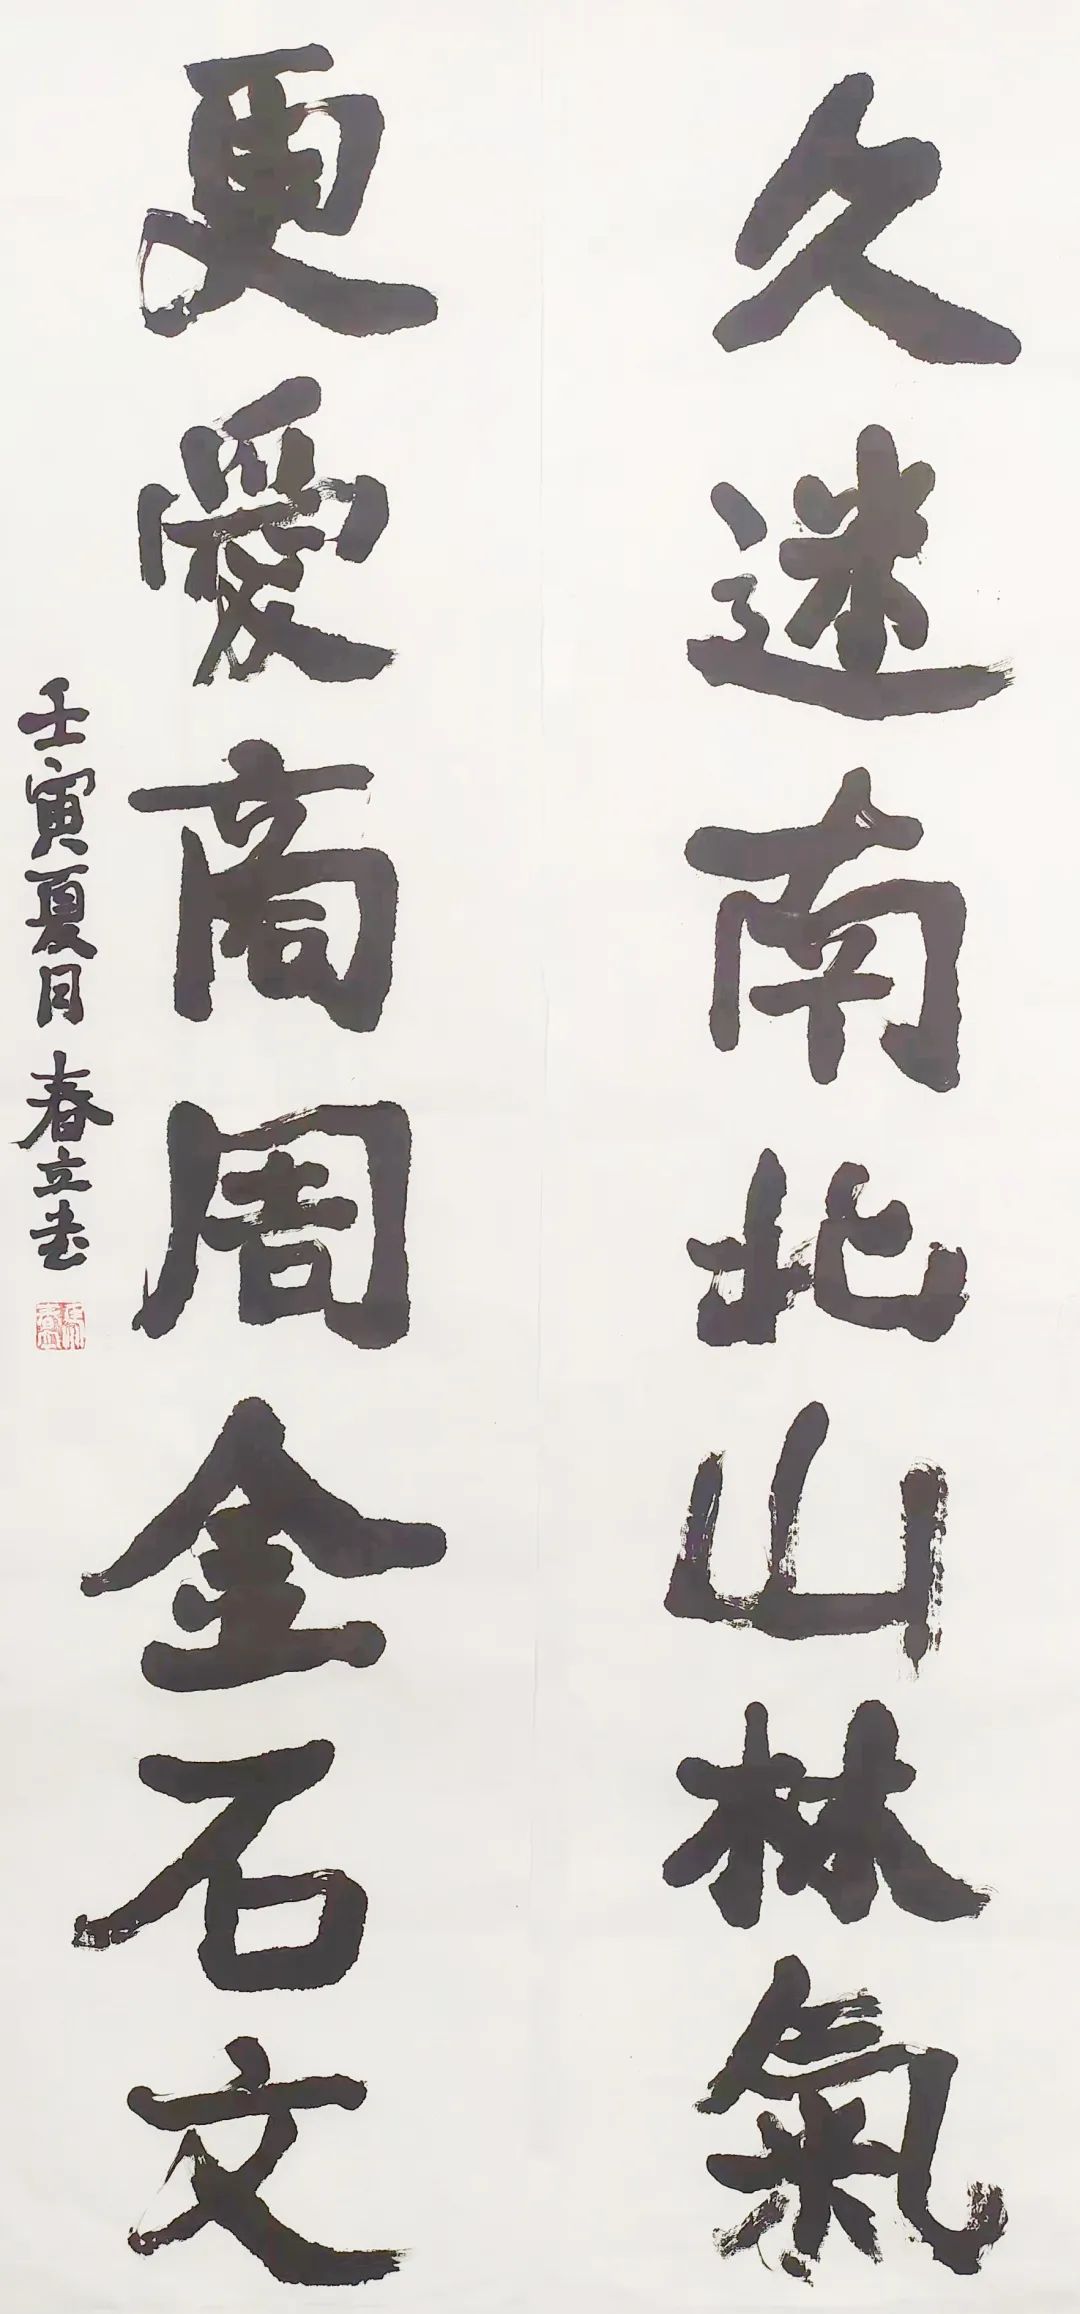 久迷南北山林氣
更愛商周金石文
壬寅夏月 春立书